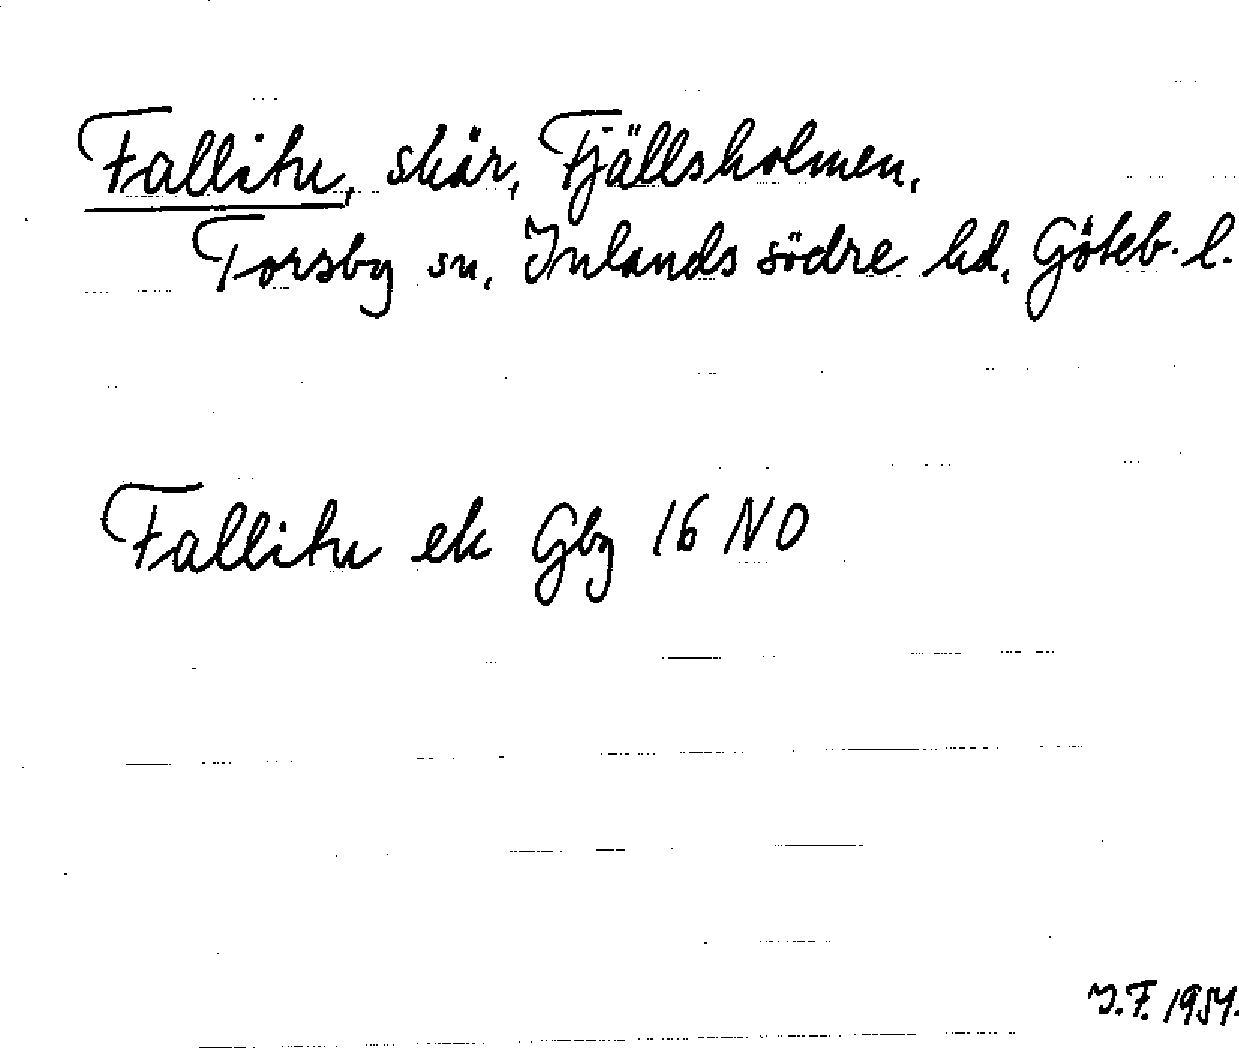 Falliten, skär, Fjällsholmen,
Torsby sn, Inlands södre hd, Göteb. l.
Falliten ek Gbg 16 NO
J.F. 1954.